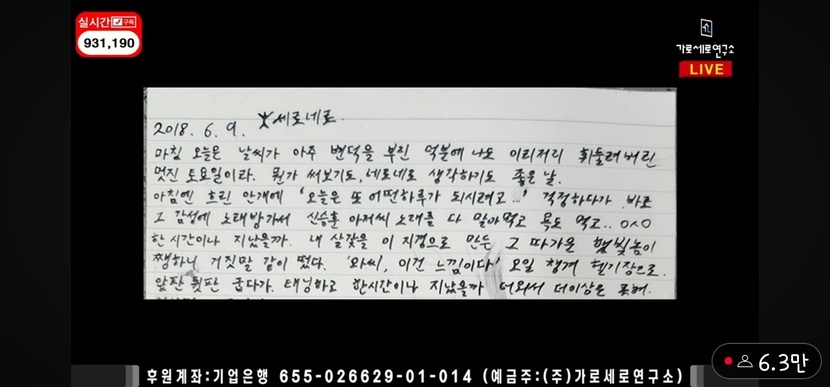 실시간 구독
931,190
가로세로연구소
LIVE
2018. 6. 9. 세로네로.
마침 오늘은 날씨가 아주 변덕을 부린 덕분에 나도 이리저리 휘둘려버린
멋진 토요일이라. 뭔가 써보기도, 네로네로 생각하기도 좋은 날.
아침엔 흐린 안개에 '오늘은 또 어떤하루가 되시려고...' 걱정하다가 바로
그 감성에 노래방가서 신승훈 아저씨 노래를 다 말아먹고 욕도 먹고.. ㅇㅅㅇ
한시간이나 지났을까. 내 살갗을 이 지경으로 만든 그 따가운 햇빛놈이
쨍하니 거짓말 같이 떴다. '와씨, 이건 느낌이다' 오일 챙겨 헬기장으로.
앞판 뒷판 굽다가. 태닝하고 한시간이나 지났을까 더워서 더이상은 못해.
후원계좌:기업은행 655-026629-01-014 (예금주:(주)가로세로연구소)
6.3만